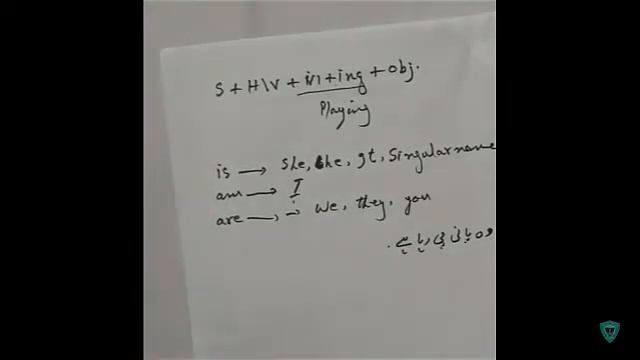 S + H\V + iv1+ing + obj.
Playing
is → She, he, gt, Singular name
am → I
are → we, they, you
وہ پانی پی رہا ہے.